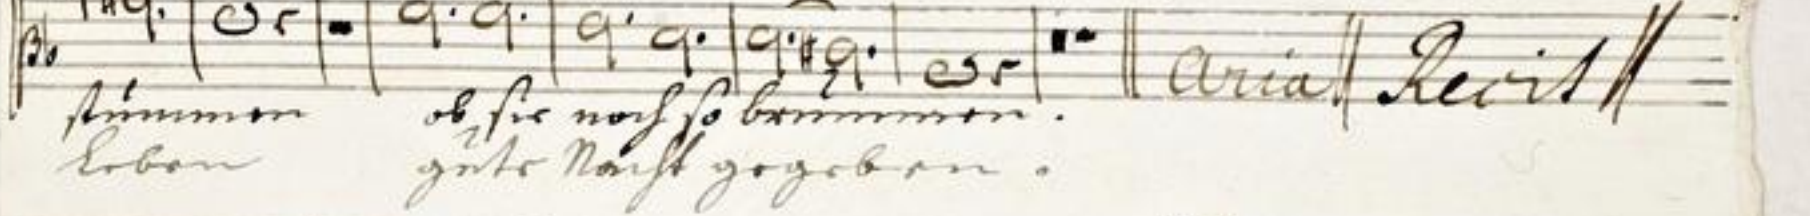 Aria Recit
stummen ob sie noch so brummen.
Leben gute Nacht gegeben.